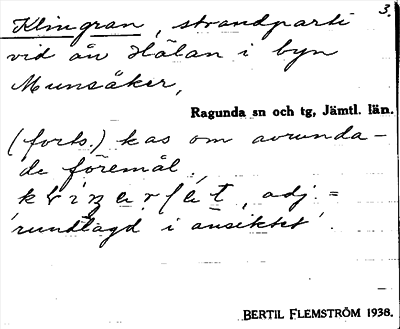 3.
Klingran, strandparti
vid ån Hälan i byn
Munsåker,
Ragunda sn och tg, Jämtl. län.
(forts.) kas om avrunda-
de föremål,
adj. =
'rundlagd i ansiktet'.
BERTIL FLEMSTRÖM 1938.